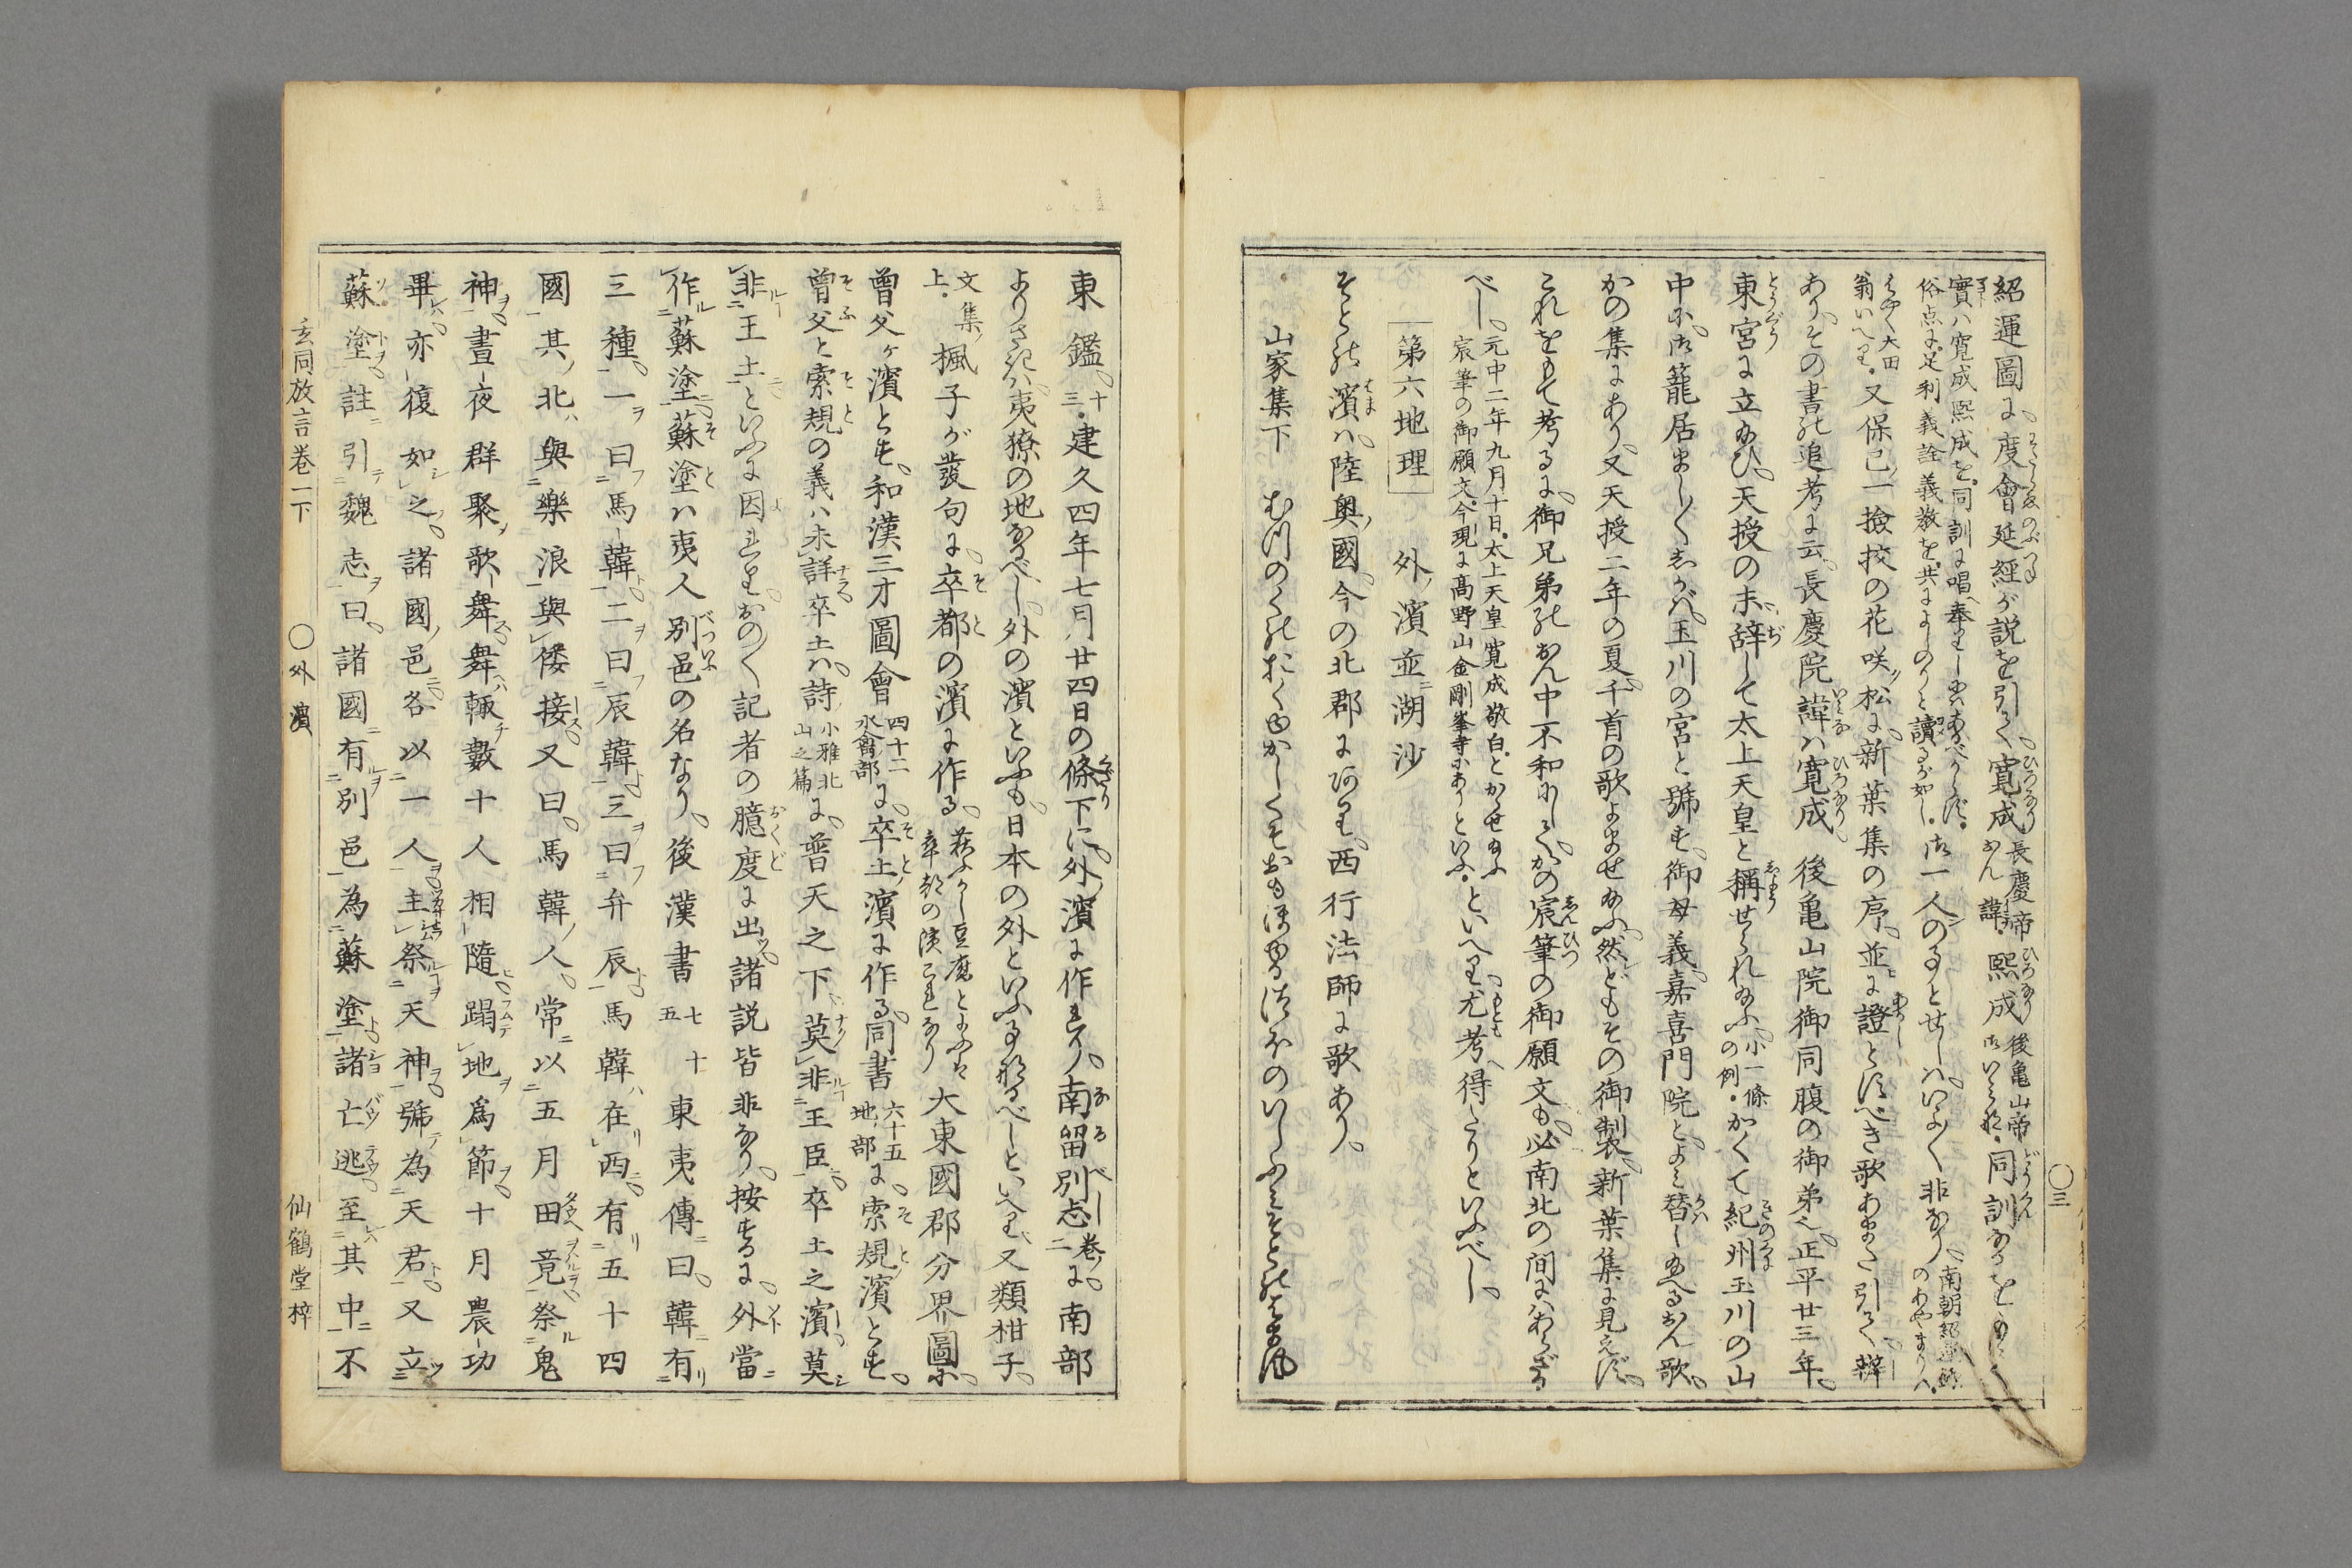 紹運圖に、度會延經が説を引て、寛成長慶帝おん諱熙成後亀山帝御いミな同訓なるをもて、
實ハ寛成熙成を、同訓に唱奉りしにハあるべからず。
俗点に、足利義詮義教を、共によしのりと讀るが如し。御一人の事とせしハ、いよ〱非なり、南朝紹運録のあやまりハ、
はやく大田翁いへり。又保己一撿挍の花咲松に、新葉集の序、並に證とすべき歌あまた引て、辯
あり、その書の追考に云、長慶院諱ハ寛成、後亀山院御同腹の御弟也、正平廿三年、
東宮に立給ひ、天授の末、辞して太上天皇と稱せられ給ふ、小一條の例。かくて紀州玉川の山
中に、御籠居まし〱しかバ、玉川の宮と號す、御母義、嘉喜門院と、よミ替し給へるおん歌、
かの集にあり、又天授二年の夏、千首の歌よませ給ふ、然どもその御製、新葉集に見えず、
これをもて考るに、御兄弟のおん中不和にして、かの宸筆の御願文も、必南北の間にハあらざる
べし、元中二年九月十日、太上天皇寛成敬白、とかゝせ給ふ
宸筆の御願文、今現に高野山金剛峯寺にありといふ。といへり、尤考得たりといふべし、
第六地理　外濱並湖沙
そとの濱ハ、陸奥國、今の北郡に在り、西行法師に歌あり、
山家集下　むつのくのおくゆかしくぞおもほゆるつぼのいしぶミそとのはま風
〇三
東鑑、十三。建久四年七月廿四日の條下に、外濱に作れり、南留別志巻二に、南部
よりさきハ、夷獠の地なるべし、外の濱といふも、日本の外といふ事なるべしといへり、又類柑子、
文集上。楓子が發句に、卒都の濱に作る、萩ふかし豆腐とよぶは
卒都の濱これなり 大東國郡分界圖に、
曽父ヶ濱とす、和漢三才圖會四十二水禽部に、卒土濱に作る、同書六十五地部に、索規濱とす、
曽父と索規の義ハ未詳、卒土ハ、詩小雅北山之篇に、普天之下、莫非王臣、卒土之濱、莫
非王土といふに因れり、おの〱記者の臆度に出、諸説皆非なり、按するに、外當
作蘇塗、蘇塗ハ夷人別邑の名なり、後漢書七十五東夷傳曰、韓有
三種、一曰馬韓、二曰辰韓、三曰弁辰、馬韓在西、有五十四
國、其北與樂浪、與倭接、又曰、馬韓人、常以五月田竟祭鬼
神、晝夜群聚歌舞、舞輙數十人相隨、蹋地為節、十月農功
畢、亦復如之、諸國邑、各以一人、主祭天神、號為天君、又立
蘇塗、註引魏志曰、諸國有別邑、為蘇塗、諸亡逃至其中、不
玄同放言巻一下　〇外濱　仙鶴堂梓